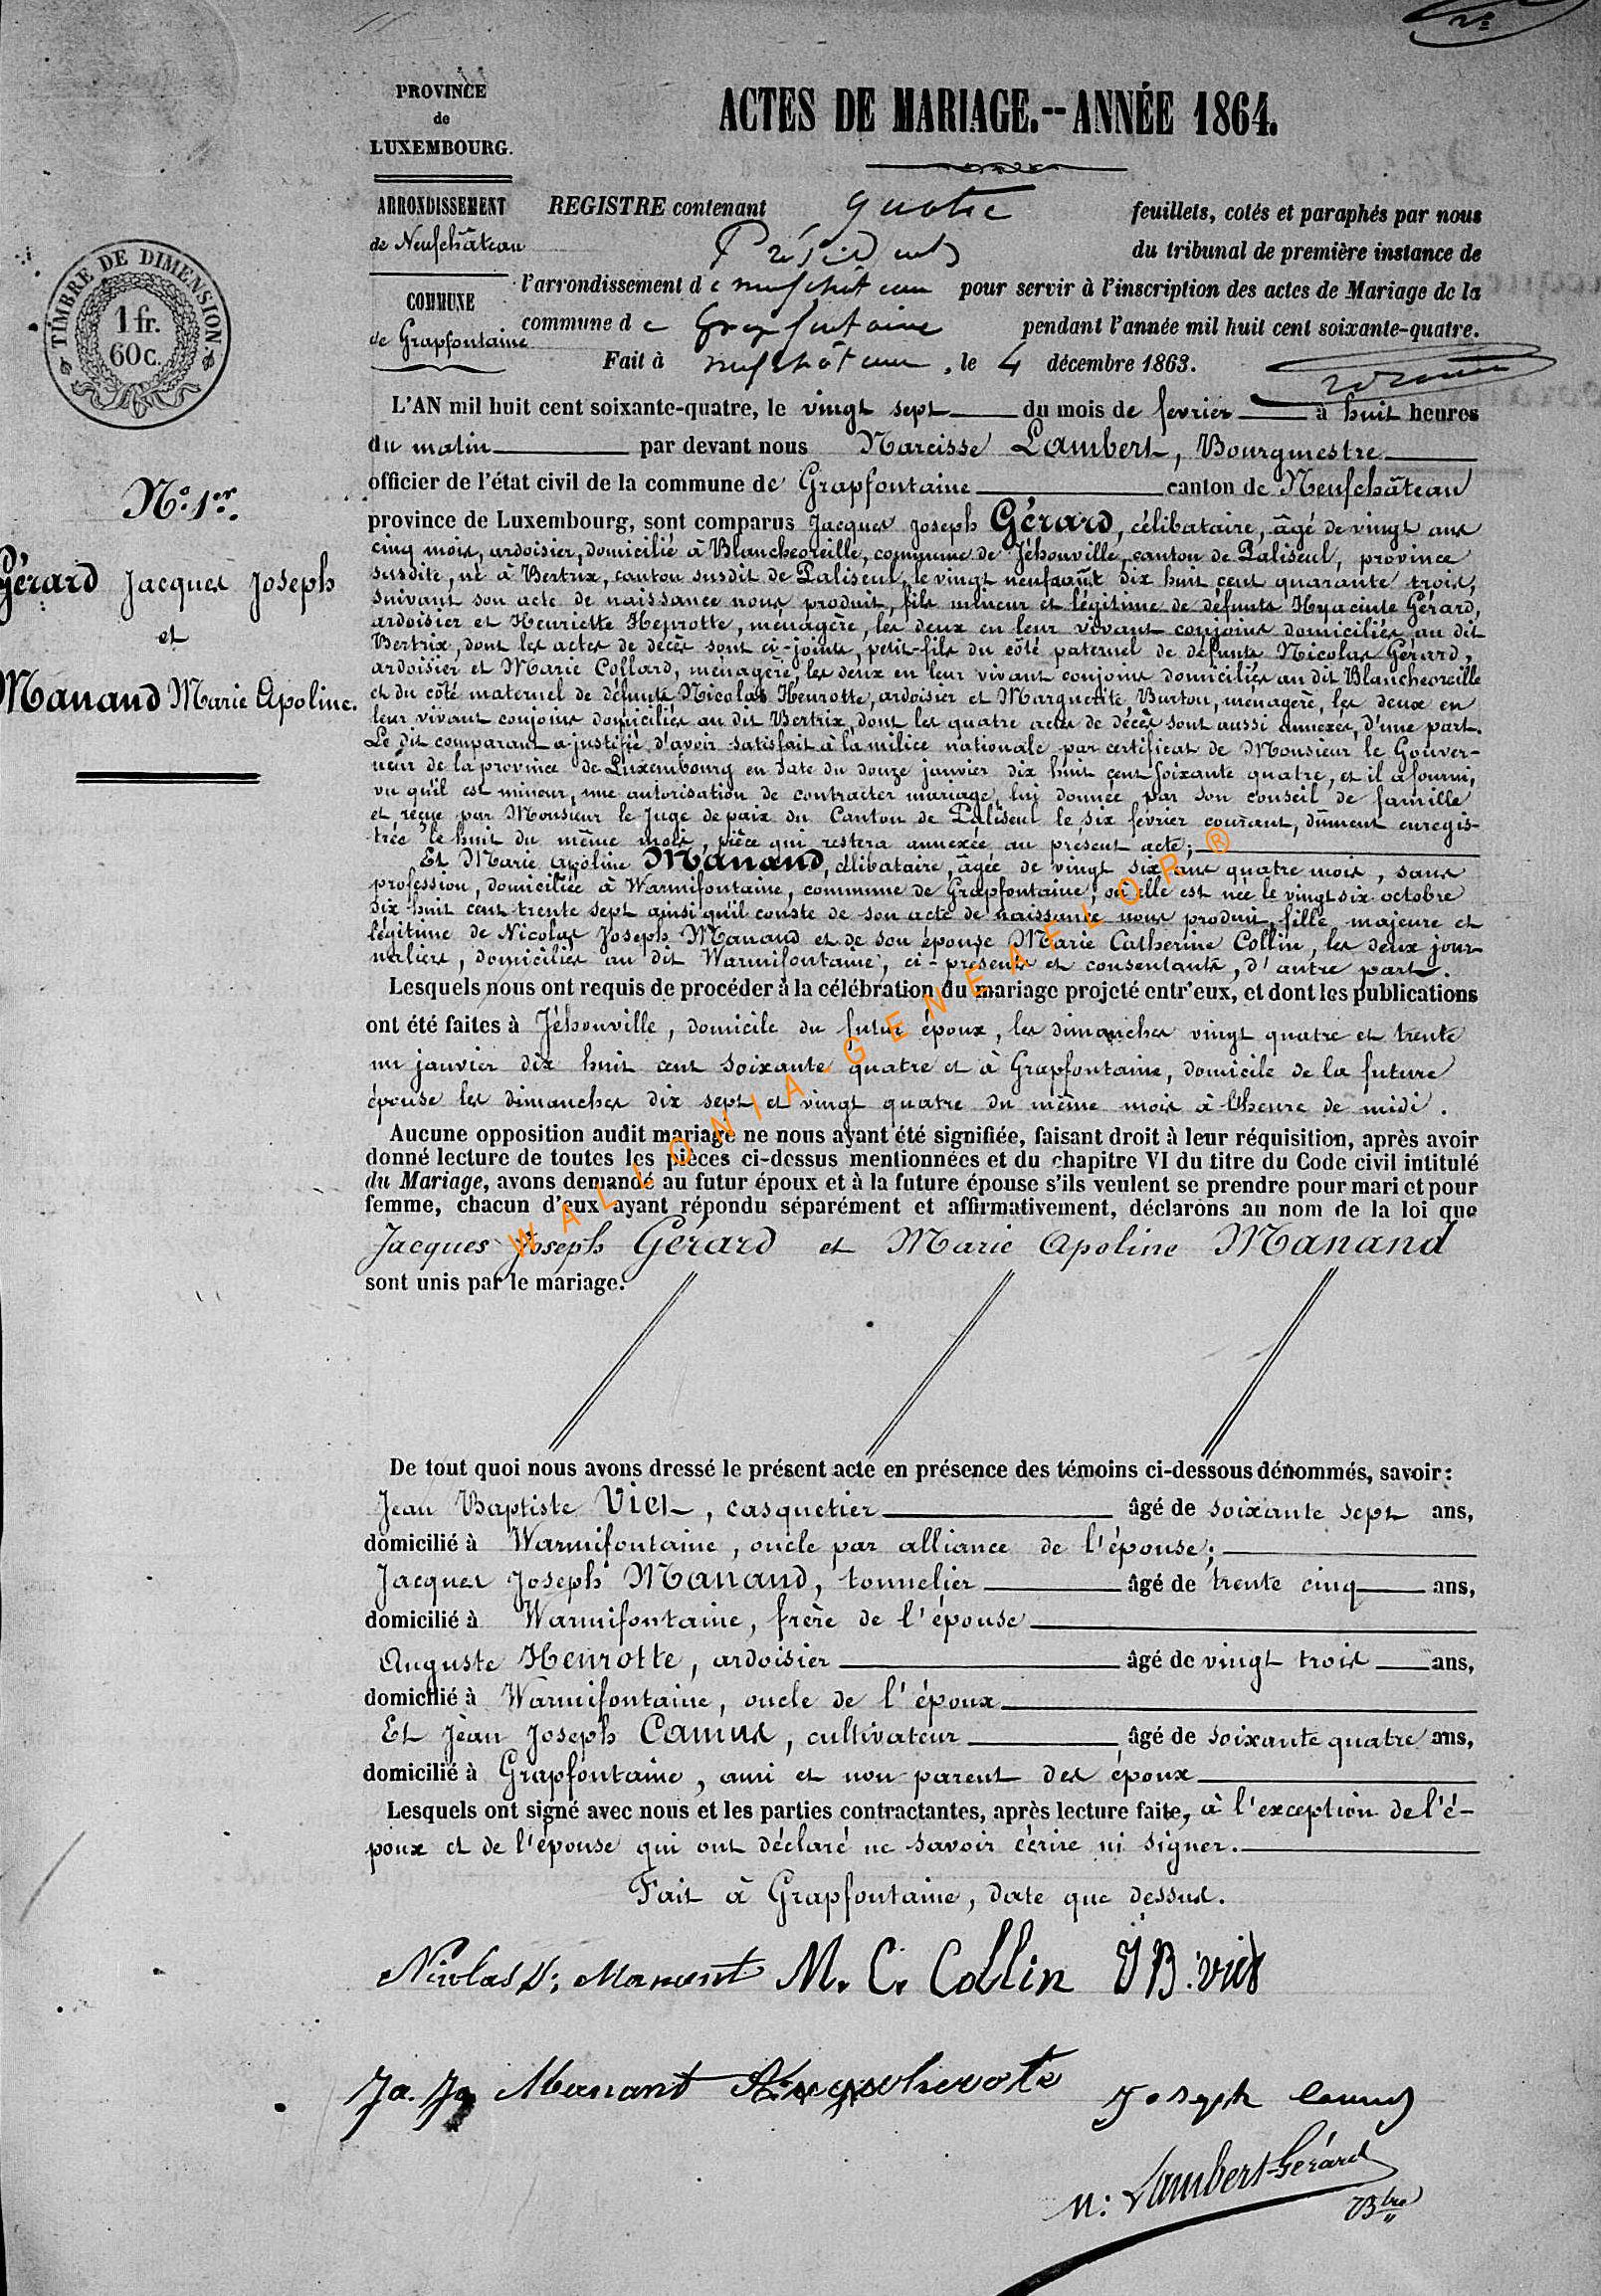 PROVINCE
de
LUXEMBOURG.
ARRONDISSEMENT
de Neufchâteau
COMMUNE
de Grapfontaine
TIMBRE DE DIMENSION.
1 fr.
60 c.
ACTES DE MARIAGE.--ANNÉE 1864.
REGISTRE contenant quatre feuillets, cotés et paraphés par nous
Président du tribunal de première instance de
l'arrondissement de neufchâteau pour servir à l'inscription des actes de Mariage de la
commune de Grapfontaine pendant l'année mil huit cent soixante-quatre.
Fait à neufchâteau, le 4 décembre 1863.
N° 1er.
Gérard Jacques Joseph
et
Manand Marie Apoline.
L'AN mil huit cent soixante-quatre, le vingt sept du mois de fevrier à huit heures
du matin par devant nous Narcisse Lambert, Bourgmestre
officier de l'état civil de la commune de Grapfontaine canton de Neufchâteau
province de Luxembourg, sont comparus Jacques Joseph Gérard, célibataire, âgé de vingt ans
cinq mois, ardoisier, domicilié à Blancheoreille, commune de Jéhonville, canton de Paliseul, province
susdite, né à Bertrix, canton susdit de Paliseul, le vingt neuf août dix huit cent quarante trois,
suivant son acte de naissance nous produit, fils mineur et légitime de défunts Hyacinte Gérard,
ardoisier et Henriette Henrotte, ménagère, les deux en leur vivant conjoins domiciliés au dit
Bertrix, dont les actes de décès sont ci-joints, petit-fils du côté paternel de défunts Nicolas Gérard,
ardoisier et Marie Collard, ménagère, les deux en leur vivant conjoins domiciliés au dit Blancheoreille
et du côté maternel de défunts Nicolas Henrotte, ardoisier et Marguerite Burton, ménagère, les deux en
leur vivant conjoins domiciliés au dit Bertrix, dont les quatre actes de décès sont aussi annexés, d'une part.
Le dit comparant a justifié d'avoir satisfait à la milice nationale par certificat de Monsieur le Gouver-
neur de la province de Luxembourg en date du douze janvier dix huit cent soixante quatre, et il a fourni,
vu qu'il est mineur, une autorisation de contracter mariage, lui donnée par son conseil de famille
et reçue par Monsieur le Juge de paix du Canton de Paliseul le six fevrier courant, dûment enregis-
trée le huit du même mois, pièce qui restera annexée au présent acte;
Et Marie Apoline Manand, célibataire, âgée de vingt six ans quatre mois, sans
profession, domiciliée à Warmifontaine, commune de Grapfontaine, où elle est née le vingt six octobre
dix huit cent trente sept ainsi qu'il conste de son acte de naissance nous produit, fille majeure et
légitime de Nicolas Joseph Manand et de son épouse Marie Catherine Collin, les deux jour-
naliers, domiciliés au dit Warmifontaine, ci-présents et consentants, d'autre part.
Lesquels nous ont requis de procéder à la célébration du mariage projeté entr'eux, et dont les publications
ont été faites à Jéhonville, domicile du futur époux, les dimanches vingt quatre et trente
un janvier dix huit cent soixante quatre et à Grapfontaine, domicile de la future
épouse les dimanches dix sept et vingt quatre du même mois à l'heure de midi.
Aucune opposition audit mariage ne nous ayant été signifiée, faisant droit à leur réquisition, après avoir
donné lecture de toutes les pièces ci-dessus mentionnées et du chapitre VI du titre du Code civil intitulé
du Mariage, avons demandé au futur époux et à la future épouse s'ils veulent se prendre pour mari et pour
femme, chacun d'eux ayant répondu séparément et affirmativement, déclarons au nom de la loi que
Jacques Joseph Gérard et Marie Apoline Manand
sont unis par le mariage.
WALLONIA-GENEAFLOR ®
De tout quoi nous avons dressé le présent acte en présence des témoins ci-dessous dénommés, savoir:
Jean Baptiste Viet, casquetier âgé de soixante sept ans,
domicilié à Warmifontaine, oncle par alliance de l'épouse;
Jacques Joseph Manand, tonnelier âgé de trente cinq ans,
domicilié à Warmifontaine, frère de l'épouse
Auguste Henrotte, ardoisier âgé de vingt trois ans,
domicilié à Warmifontaine, oncle de l'époux
Et Jean Joseph Camus, cultivateur âgé de soixante quatre ans,
domicilié à Grapfontaine, ami et non parent des époux
Lesquels ont signé avec nous et les parties contractantes, après lecture faite, à l'exception de l'é-
poux et de l'épouse qui ont déclaré ne savoir écrire ni signer.
Fait à Grapfontaine, date que dessus.
Nicolas J: Manant M. C. Collin J B. viet
Ja. Jo Manant Joseph Camus
N: Lambert-Gérard
Btre